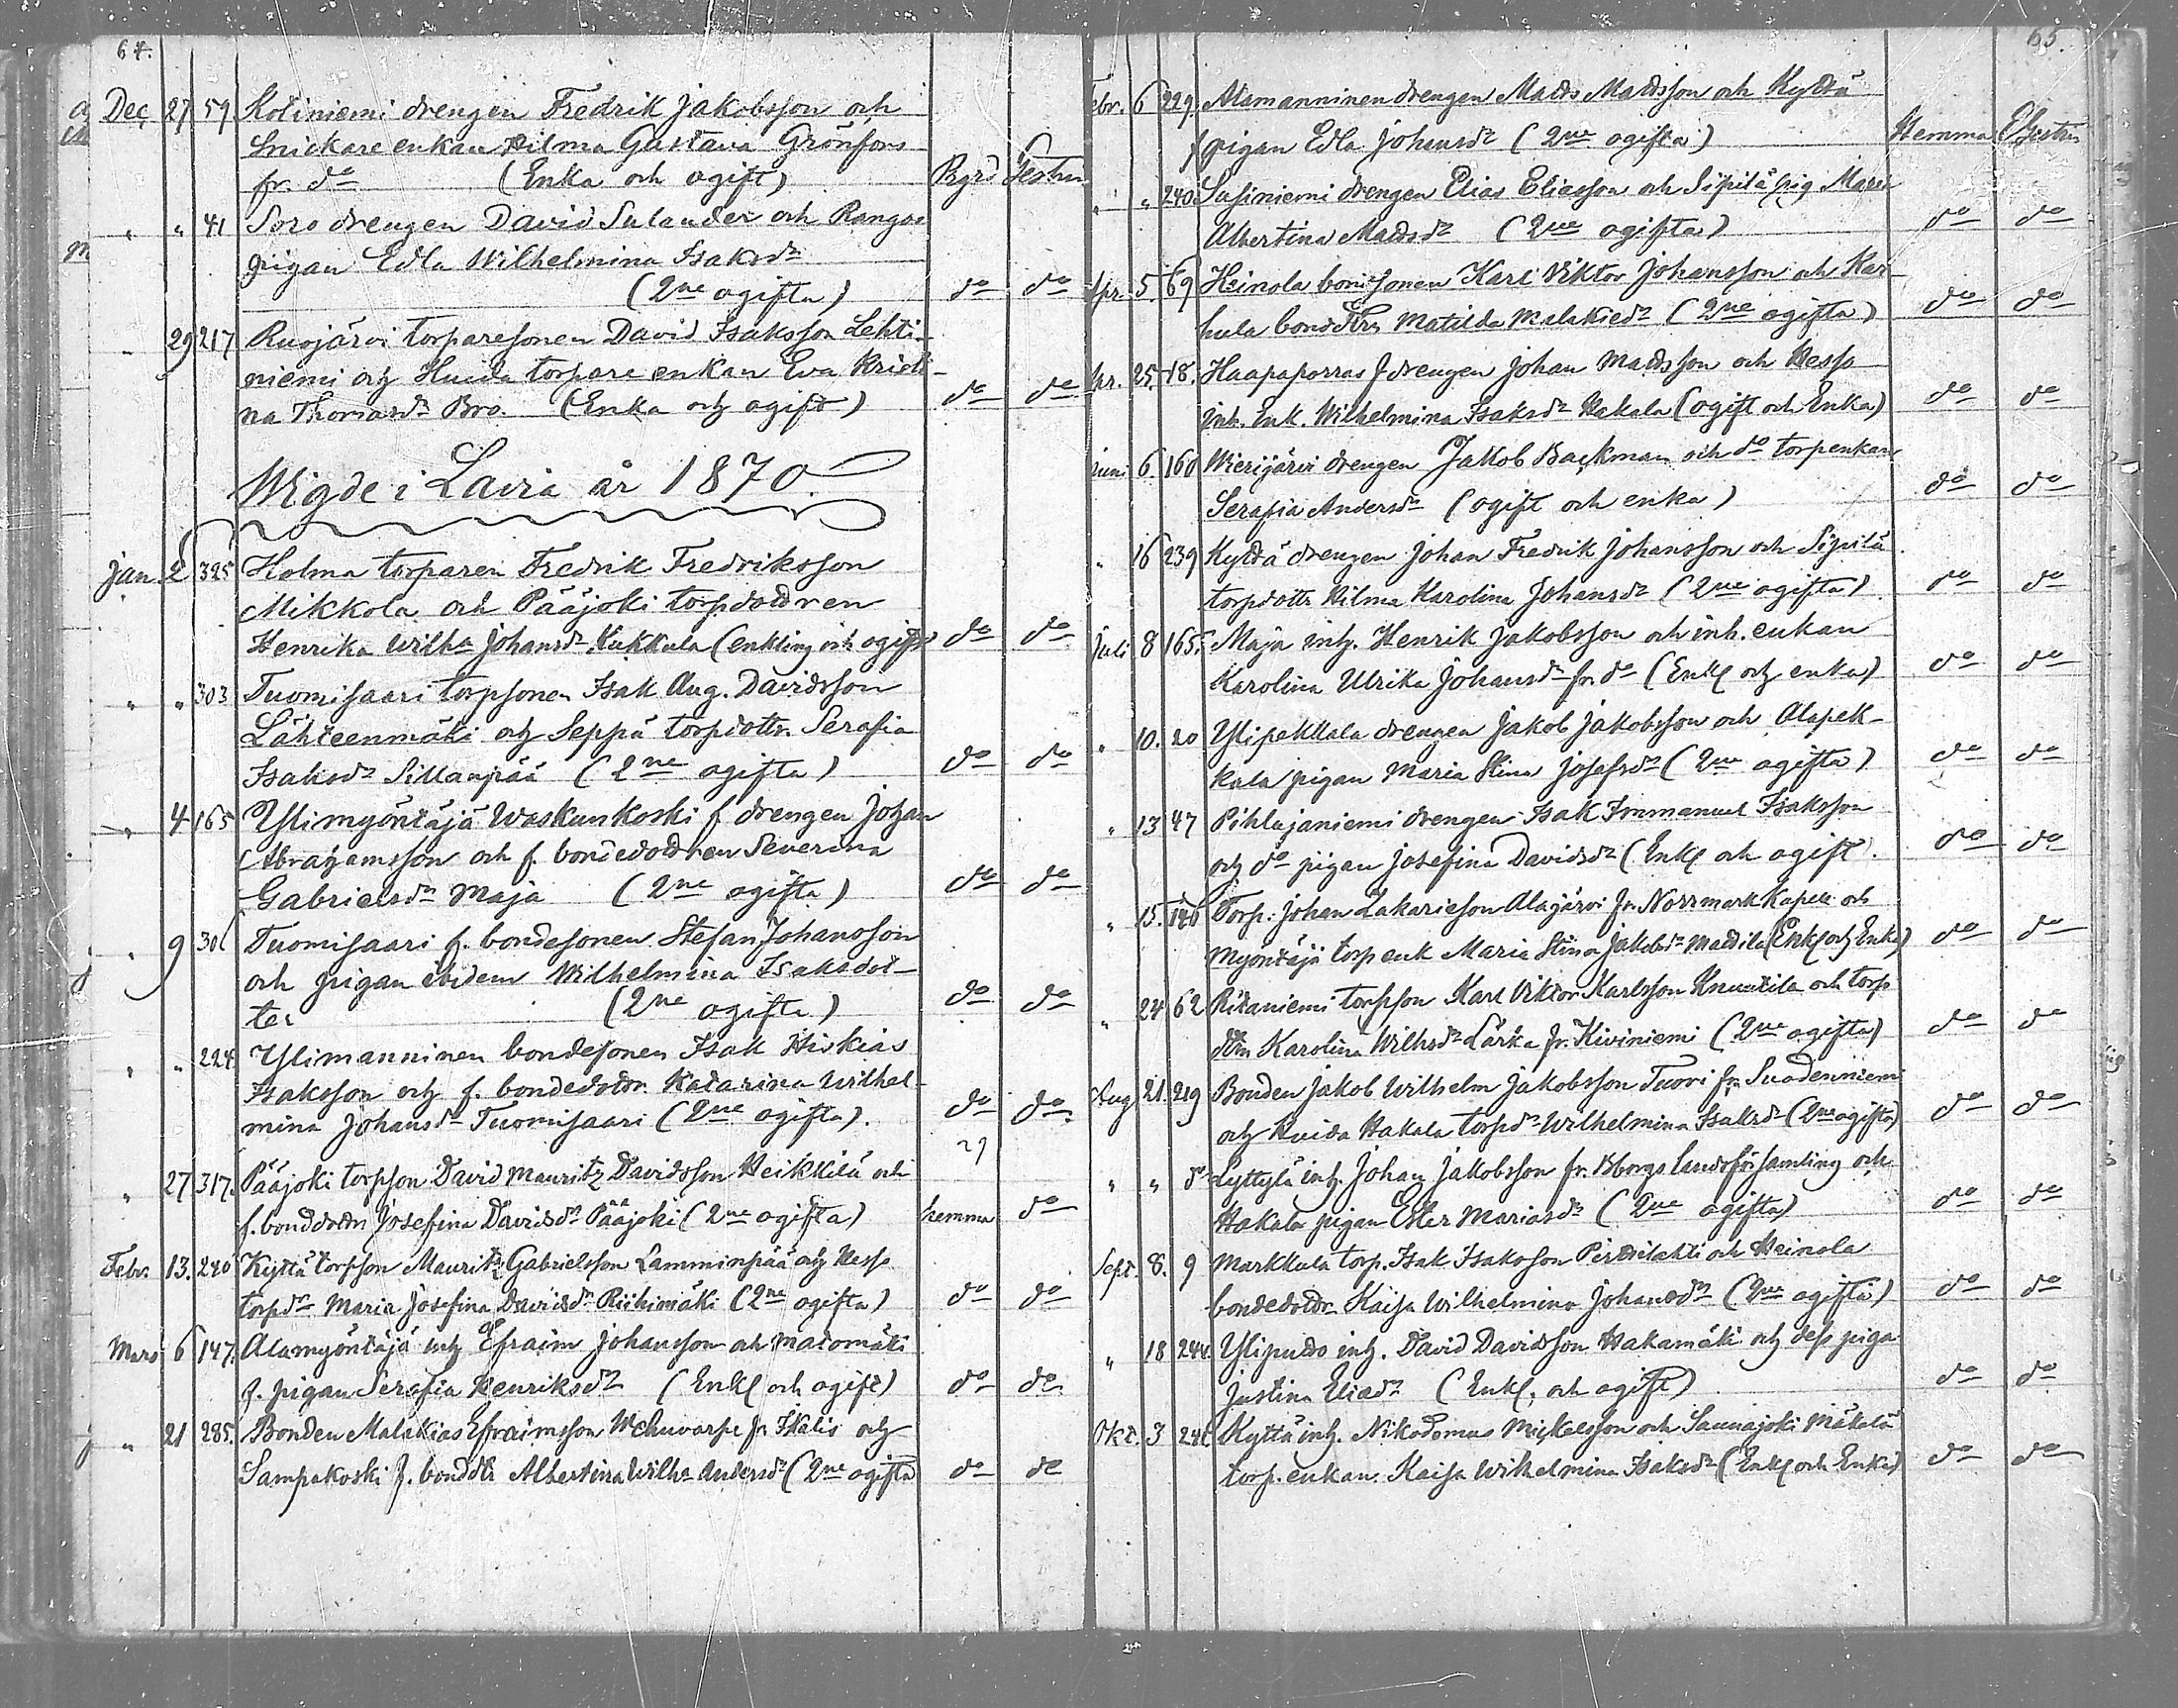 64.
Dec 27 59 Kotiniemi drengen Fredrik Jakobsson och
Snickare enkan Hilma Gustava Grönfors
fr. do (Enka och ogift) Prgrd Gestrin
" " 41 Soro drengen David Sulander och Rangos
pigan Edla Wilhelmina Isaksdr
(2ne ogifta) do do
" 29 217 Ruojärvi torparesonen David Isaksson Lehti-
niemi och Huida torpare enkan Eva Kristi-
na Thomasdr Bro. (Enka och ogift) do do
Wigde i Lavia år 1870.
Jan. 2 325 Holma torparen Fredrik Fredriksson
Mikkola och Pääjoki torpdottren
Henrika Wilha Johansdr Kukkula (enkling och ogift) do do
" " 303 Tuomisaari torpsonen Isak Aug. Davidsson
Lähteenmäki och Seppä torpdottr. Serafia
Isaksdr Sillanpää (2ne ogifta) do do
" 4 165 Ylimyöntäjä Waskunkoski f drengen Johan
Abrahamsson och f. bondedottren Severina
Gabrielsdr Maja (2ne ogifta) do do
" 9 301 Tuomisaari f. bondesonen Stefan Johansson
och pigan ibidem Wilhelmina Isaksdot-
ter (2ne ogifta) do do
" " 224 Ylimanninen bondesonen Isak Hiskias
Isaksson och f. bondedottr. Katarina Wilhel-
mina Johansdr Tuomisaari (2ne ogifta). do do
" 27 317. Pääjoki torpson David Mauritz Davidsson Heikkilä och
f. bonddottr Josefina Davidsdr Pääjoki (2ne ogifta) hemma do
Febr. 13. 240 Kyttä torpson Mauritz Gabrielsson Lamminpää och Hesso
torpdr Maria Josefina Davidsdr Riihimäki (2ne ogifta) do do
Mars 6 147. Alamyöntäjä inh Efraim Johansson och Matomäki
f. pigan Serafia Henriksdr (Enkl och ogift) do do
" 21 285. Bonden Malakias Efraimsson fr Ikalis och
Sampakoski f. bonddtr Albertina Wilha Andersdr (2ne ogifta do do
65.
Febr. 6 229. Alamanninen drengen Matts Mattsson och Kyttä
f pigan Edla Johansdr (2ne ogifta) Hemma Gestrin
" " 240. Susiniemi drengen Elias Eliasson och Sipilä pig Maria
Albertina Mattsdr (2ne ogifta) do do
Apr. 5. 69 Heinola bondsonen Karl Viktor Johansson och Kar-
hula bonddtr. Matilda Malakiedr (2ne ogifta) do do
Apr. 25. 18. Haapaporras f drengen Johan Mattsson och Hesso
inh. Enk. Wilhelmina Isaksdr Hakala (ogift och Enka) do do
Juni 6. 160 Wierijärvi drengen Jakob Backman och do torpenkan
Serafia Andersdr (ogift och enka) do do
" 16 239 Kyttä drengen Johan Fredrik Johansson och Sipilä
torpdottr Hilma Karolina Johansdr (2ne ogifta) do do
Juli 8 165. Maja inh. Henrik Jakobsson och inh. enkan
Karolina Ulrika Johansdr fr. do (Enkl och enka) do do
" 10. 20 Ylipekkala drengen Jakob Jakobsson och Alapek-
kala pigan Maria Stina Josefsdr (2ne ogifta) do do
" 13 47 Pihlajaniemi drengen Isak Immanuel Isaksson
och do pigan Josefina Davidsdr (Enkl och ogift). do do
" 15. 146 Torp. Johan Zakariesson Alajärvi fr. Norrmark Kapell och
Myöntäjä torp enk Maria Stina Jakobsdr Mattila (Enkl och Enka) do do
" 24 62 Ritaniemi torpson Karl Viktor Karlsson Knuutila och torp
dtrn Karolina Wilhsdr Lärka fr. Kiviniemi (2ne ogifta) do do
Aug 21. 219 Bonden Jakob Wilhelm Jakobsson Tuori fr. Suodenniemi
och Huida Hakala torpdr Wilhelmina Isaksdr (2ne ogifta) do do
" " do Lyttylä inh. Johan Jakobsson fr. Bborgs Landsförsamling och
Hakala pigan Ester Mariasdr (2ne ogifta) do do
Sept. 8. 9 Markkula torp. Isak Isaksson Perttilahti och Heinola
bondedottr. Kaisa Wilhelmina Johansdr (2ne ogifta) do do
" 18 244. Yliputto inh. David Davidsson Hakamäki och dess piga
Justina Eliedr (Enkl. och ogift) do do
Okt. 3 241. Kyttä inh. Nikodemus Mickelsson och Saunajoki Mäkelä
torp. enkan Kaisa Wilhelmina Isaksdr (Enkl och Enka) do do